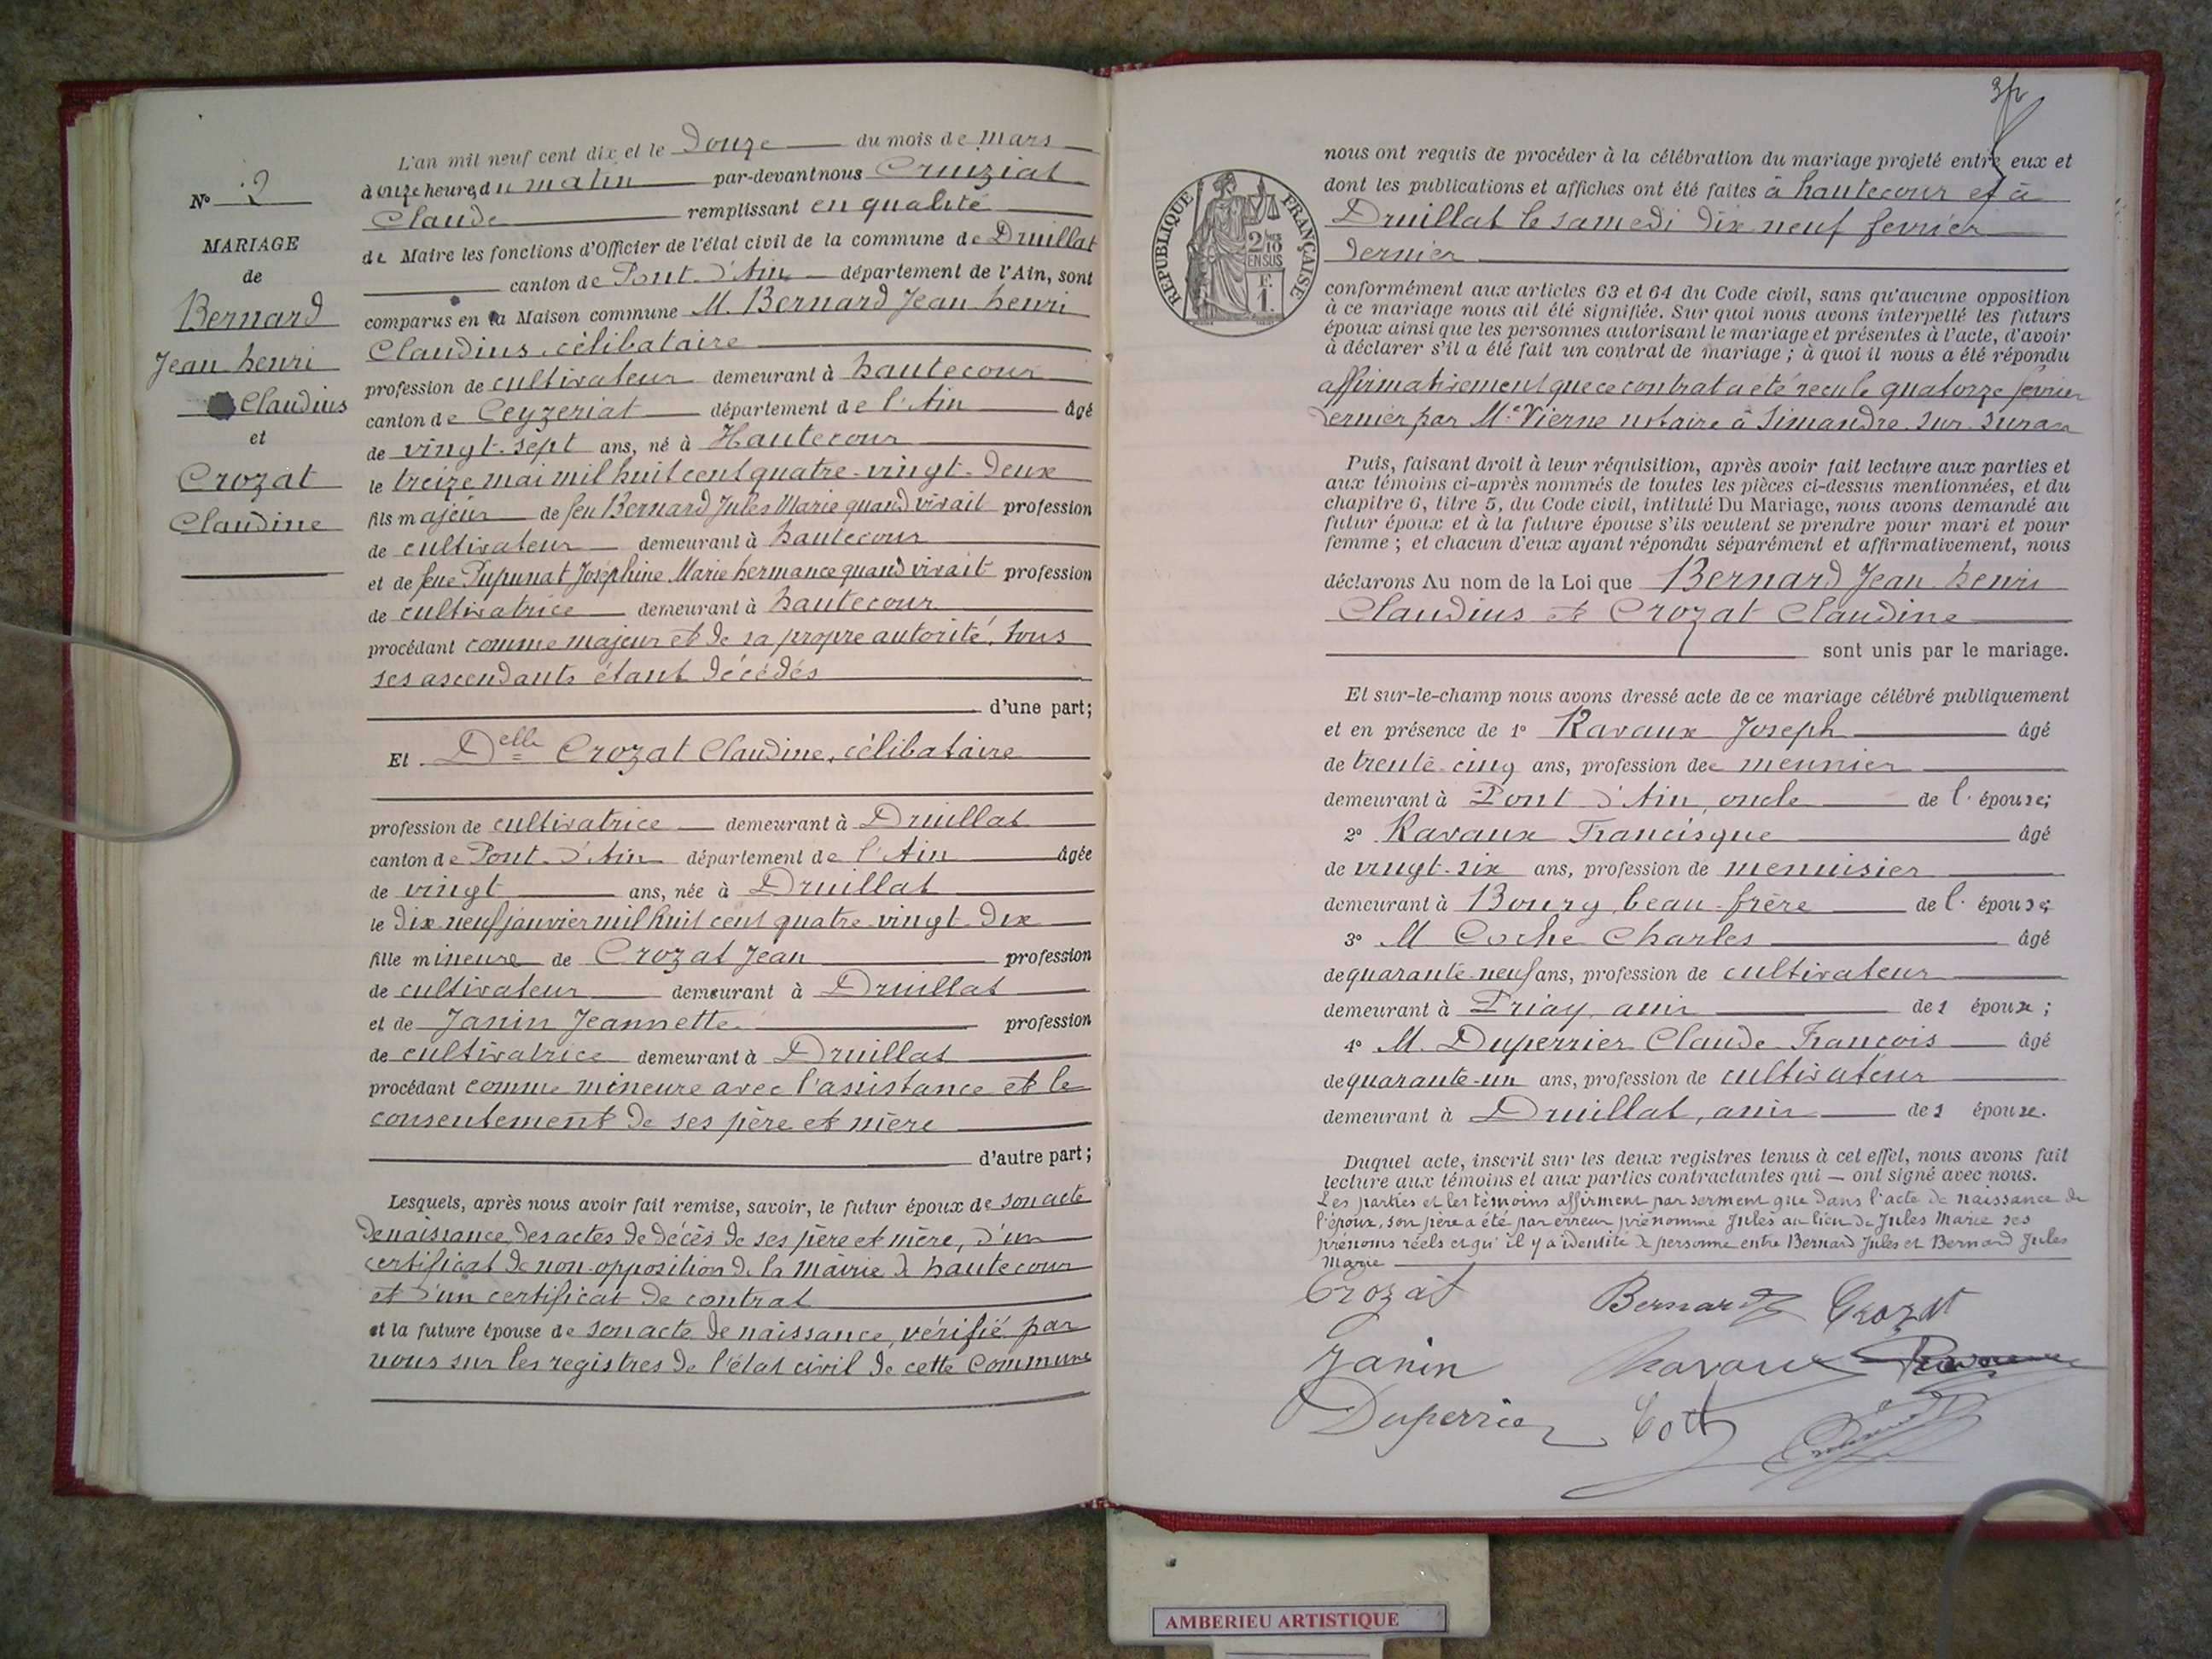 L'an mil neuf cent dix, et le Douze du mois de Mars
à onze heures du matin par-devant nous Cruiziat
Claude remplissant en qualité
de Maire les fonctions d'Officier de l'état civil de la commune de Druillat
canton de Pont-d'Ain département de l'Ain, sont
comparus en la Maison commune M. Bernard Jean henri
Claudius, célibataire
profession de cultivateur demeurant à hautecour
canton de Ceyzeriat département de l'Ain âgé
de vingt-sept ans, né à Hautecour
le treize mai mil huit cent quatre-vingt-deux
fils majeur de feu Bernard Jules Marie quand vivait profession
de cultivateur demeurant à hautecour
et de feue Pupunat Joséphine Marie hermance quand vivait profession
de cultivatrice demeurant à hautecour
procédant comme majeur et de sa propre autorité, tous
ses ascendants étant décédés
d'une part;
Et Delle Crozat Claudine, célibataire
profession de cultivatrice demeurant à Druillat
canton de Pont-d'Ain département de l'Ain âgée
de vingt ans, née à Druillat
le dix-neuf janvier mil huit cent quatre-vingt-dix
fille mineure de Crozat Jean profession
de cultivateur demeurant à Druillat
et de Janin Jeannette profession
de cultivatrice demeurant à Druillat
procédant comme mineure avec l'assistance et le
consentement de ses père et mère
d'autre part;
Lesquels, après nous avoir fait remise, savoir, le futur époux de son acte
de naissance, des actes de décès de ses père et mère, d'un
certificat de non-opposition de la mairie de hautecour
et d'un certificat de contrat
et la future épouse de son acte de naissance, vérifié par
nous sur les registres de l'état civil de cette Commune
N° 2
MARIAGE
de
Bernard
Jean henri
Claudius
et
Crozat
Claudine
3
RÉPUBLIQUE FRANÇAISE
2/10
EN SUS
F.
1.
nous ont requis de procéder à la célébration du mariage projeté entre eux et
dont les publications et affiches ont été faites à hautecour et à
Druillat le samedi dix neuf fevrier
dernier
conformément aux articles 63 et 64 du Code civil, sans qu'aucune opposition
à ce mariage nous ait été signifiée. Sur quoi nous avons interpellé les futurs
époux ainsi que les personnes autorisant le mariage et présentes à l'acte, d'avoir
à déclarer s'il a été fait un contrat de mariage; à quoi il nous a été répondu
affirmativement que ce contrat a été recu le quatorze fevrier
dernier par Me Vierne notaire à Simandre-sur-Suran
Puis, faisant droit à leur réquisition, après avoir fait lecture aux parties et
aux témoins ci-après nommés de toutes les pièces ci-dessus mentionnées, et du
chapitre 6, titre 5, du Code civil, intitulé Du Mariage, nous avons demandé au
futur époux et à la future épouse s'ils veulent se prendre pour mari et pour
femme; et chacun d'eux ayant répondu séparément et affirmativement, nous
déclarons Au nom de la Loi que Bernard Jean henri
Claudius et Crozat Claudine
sont unis par le mariage.
Et sur-le-champ nous avons dressé acte de ce mariage célébré publiquement
et en présence de 1° Ravaux Joseph âgé
de trente-cinq ans, profession de meunier
demeurant à Pont d'Ain, oncle de l'épouse;
2° Ravaux Francisque âgé
de vingt-six ans, profession de menuisier
demeurant à Bourg, beau-frère de l'épouse;
3° M Coche Charles âgé
de quarante-neuf ans, profession de cultivateur
demeurant à Priay, ami des époux;
4° M. Duperrier Claude François âgé
de quarante-un ans, profession de cultivateur
demeurant à Druillat, ami des époux.
Duquel acte, inscrit sur les deux registres tenus à cet effet, nous avons fait
lecture aux témoins et aux parties contractantes qui — ont signé avec nous.
Les parties et les témoins affirment par serment que dans l'acte de naissance de
l'époux, son père a été par erreur prénommé Jules au lieu de Jules Marie ses
prénoms réels et qu'il y a identité de personne entre Bernard Jules et Bernard Jules
Marie
Crozat Bernard Crozat
Janin Ravaux Ravaux
Duperrier
AMBERIEU ARTISTIQUE